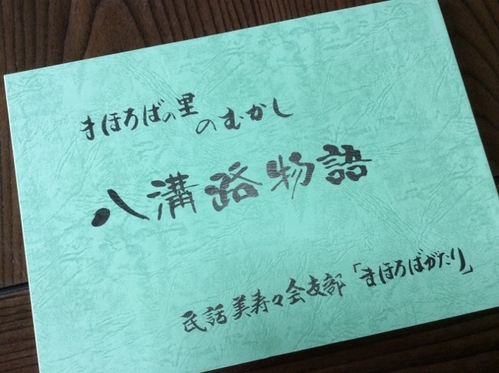 まほろばの里のむかし
八溝路物語
民話美寿々会支部「まほろばがたり」